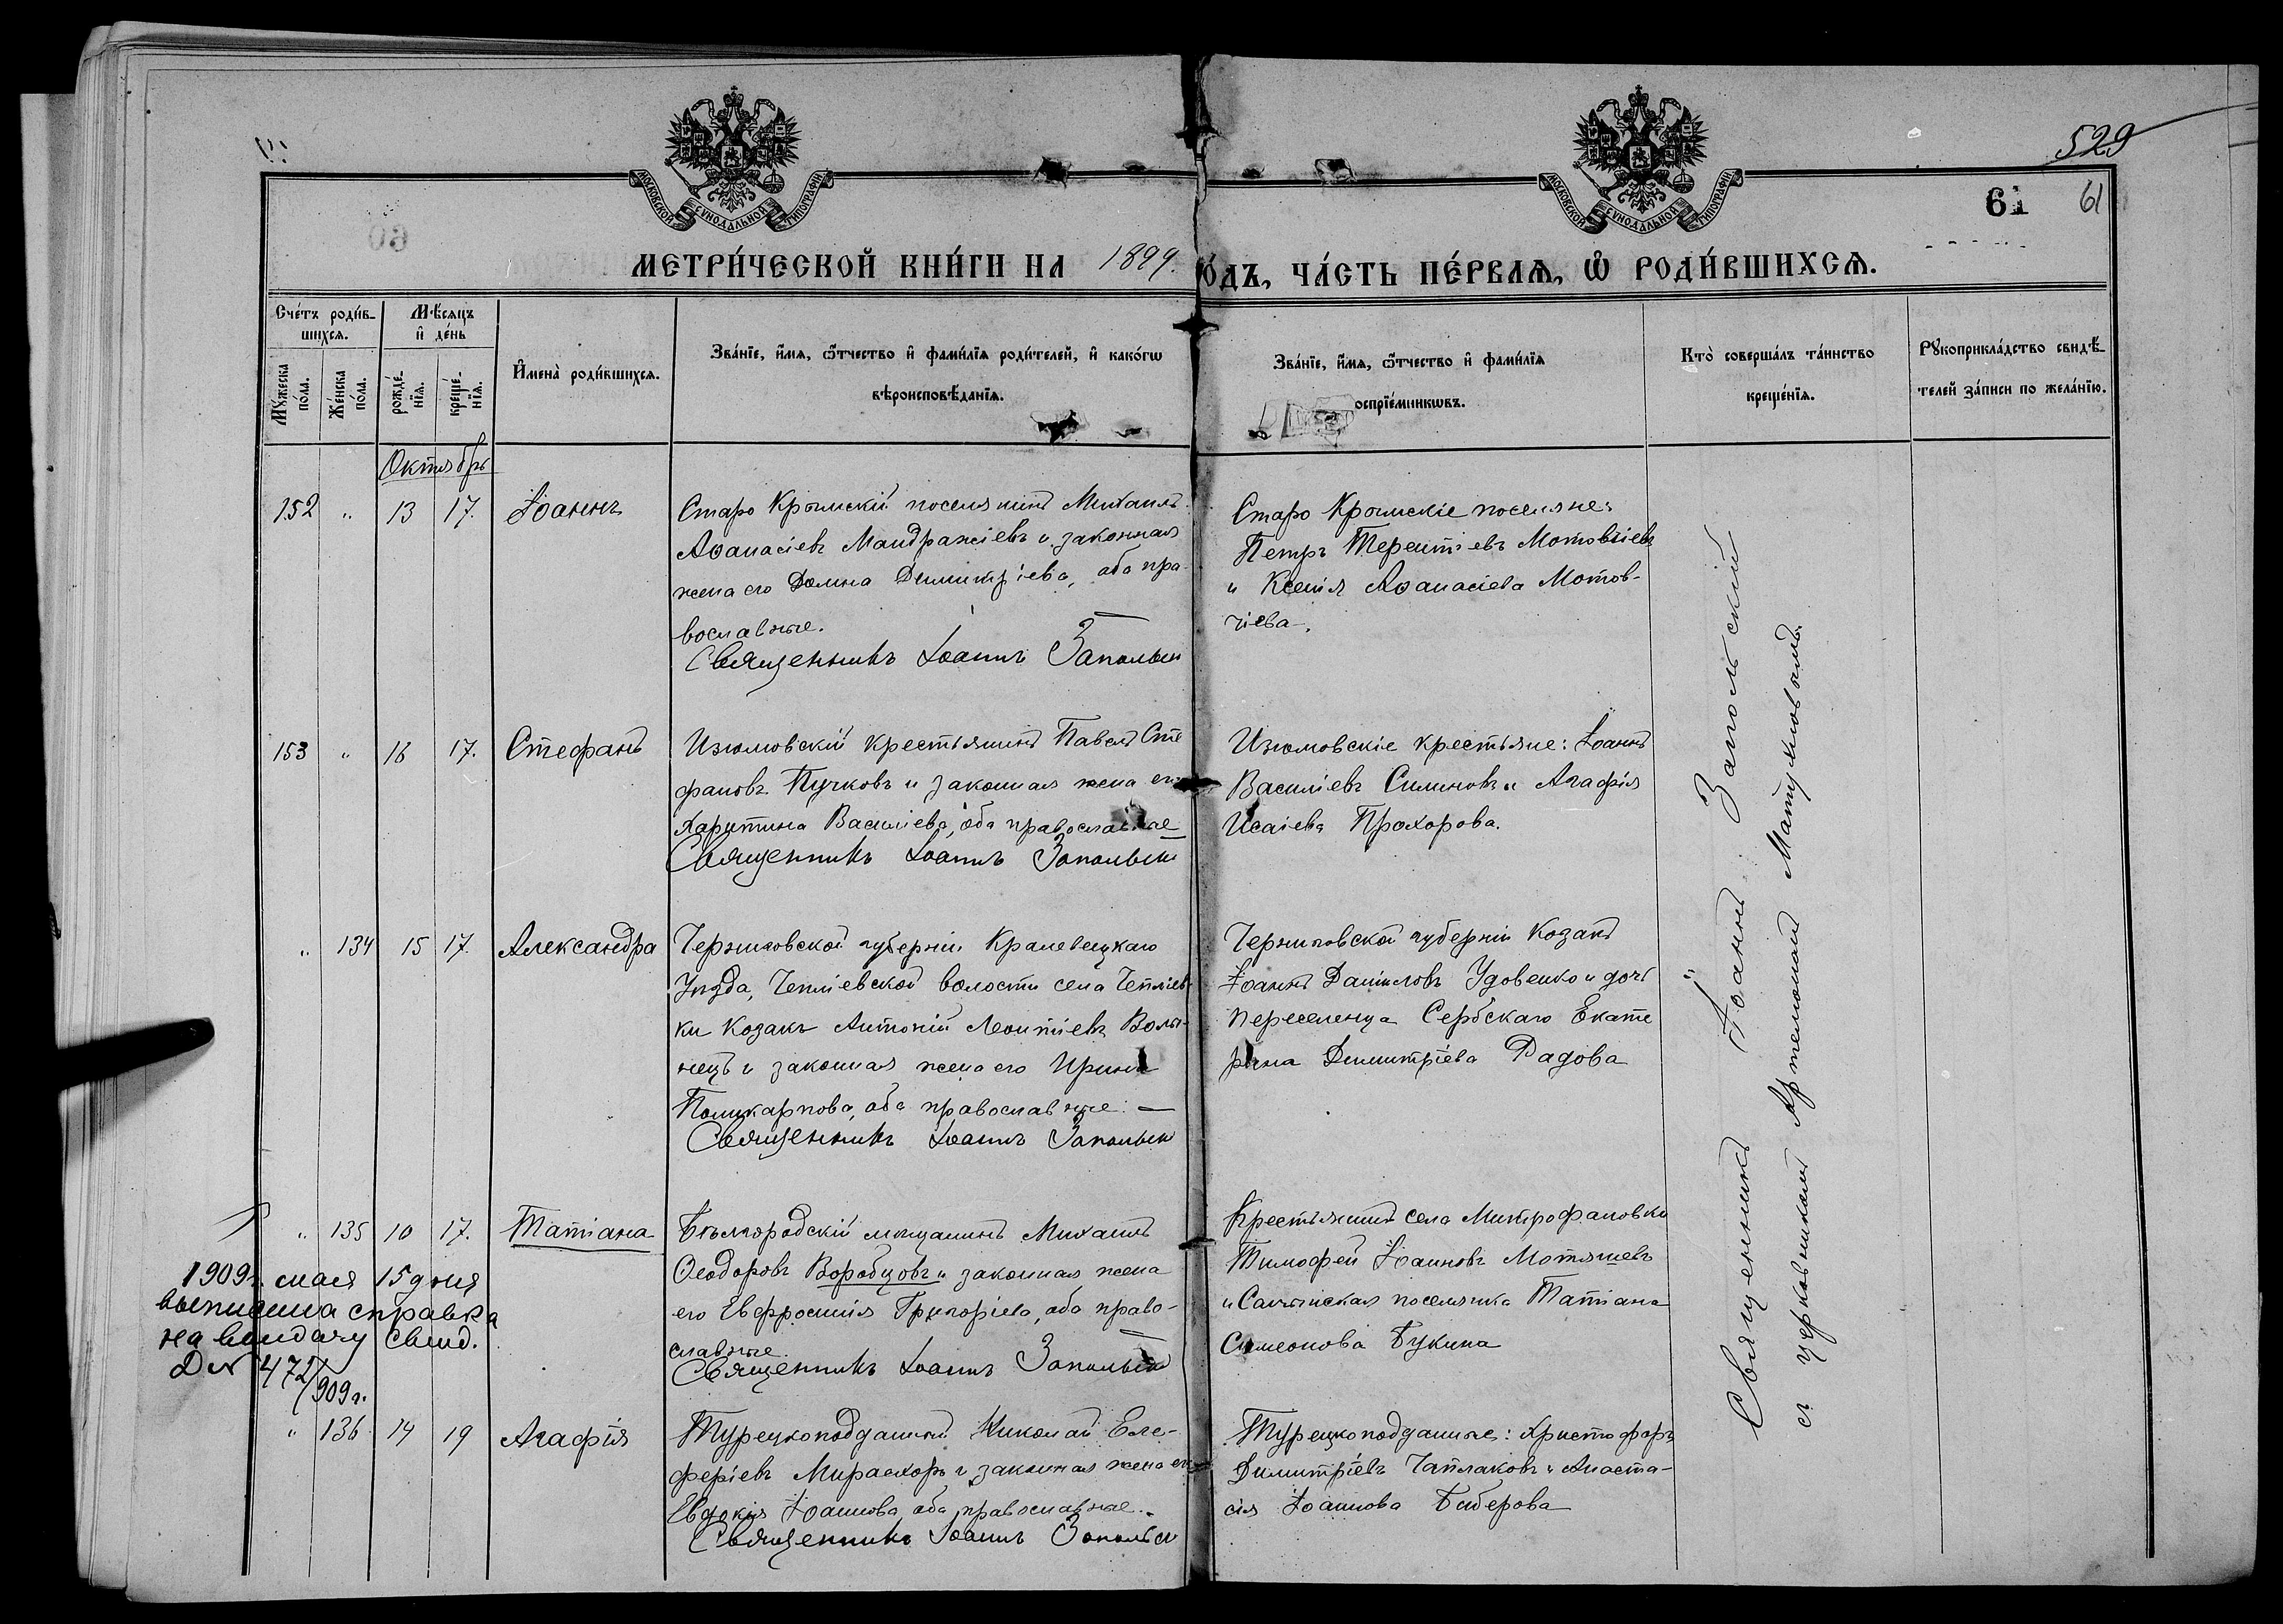 529
61
61
МОСКОВСКОЙ СѴНОДАЛЬНОЙ ТИПОГРАФІИ
МОСКОВСКОЙ СѴНОДАЛЬНОЙ ТИПОГРАФІИ
МЕТРИ́ЧЕСКОЙ КНИ́ГИ НА 1899. О́ДЪ, ЧА́СТЬ ПЕ́РВАѦ, Ѡ҆ РОДИ́ВШИХСѦ.
Сче́тъ роди́в-
шихсѧ.
Мѣ́сѧцъ
и҆ де́нь
Мꙋ́жеска
по́ла.
Же́нска
по́ла.
рожде́-
нїѧ.
креще́-
нїѧ.
И҆мена̀ роди́вшихсѧ.
Зва́нїе, и҆́мѧ, ѻ҆́тчество и҆ фами́лїѧ роди́телей, и҆ како́гѡ
вѣроисповѣ́данїѧ.
Зва́нїе, и҆́мѧ, ѻ҆́тчество и҆ фами́лїѧ
оспрїе́мникѡвъ.
Кто̀ соверша́лъ та́инство
креще́нїѧ.
Рꙋкоприкла́дство свидѣ́-
телей за́писи по жела́нїю.
Октябрь
152 " 13 17. Іоаннъ
Старо Крымскій поселянинъ Михаилъ
Аѳанасіевъ Мандражіевъ и законная
жена его Домна Димитріева, оба пра-
вославные.
Священникъ Іоаннъ Запольск
Старо Крымскіе поселяне:
Петръ Терентіевъ Мотовчіевъ
и Ксенія Аѳанасіева Мотов-
чіева.
153 " 16 17. Стефанъ
Изюмовскій крестьянинъ Павелъ Сте
фановъ Пучковъ и законная жена его
Харитина Василіева, оба православные
Священникъ Іоаннъ Запольск
Изюмовскіе крестьяне: Іоаннъ
Василіевъ Симоновъ и Агафія
Исаіева Прохорова.
" 134 15 17. Александра
Черниговской губерніи Кралевецкаго
Уѣзда, Чепліевской волости села Чепліев-
ки Козакъ Антоній Леонтіевъ Волы-
нецъ и законная жена его Ирина
Поликарпова, оба православные. —
Священникъ Іоаннъ Запольск
Черниговской губерніи Козакъ
Іоаннъ Даніиловъ Удовенко и дочь
переселенца Сербскаго Екате
рина Димитріева Радова
" 135 10 17. Татіана
Бѣлгородскій мѣщанинъ Михаилъ
Ѳеодоровъ Воробцовъ и законная жена
его Евфросинія Григоріева, оба право-
славные.
Священникъ Іоаннъ Запольск
Крестьянинъ села Митрофановки
Тимофей Іоанновъ Мотяшевъ
и Салтынская поселянка Татіана
Симеонова Букина
1909 г. мая 15 дня
выписана справка
на выдачу свид.
Д № 472/909 г.
" 136 14 19 Агафія
Турецкоподданный Николай Еле-
феріевъ Мирасхоръ и законная жена его
Евдокія Іоаннова, оба православные.
Священникъ Іоаннъ Запольск
Турецкоподданные: Христофоръ
Димитріевъ Чатлаковъ и Анаста-
сія Іоаннова Биберова
Священникъ Іоаннъ Запольскій
съ церковникомъ Артемономъ Матушковымъ.